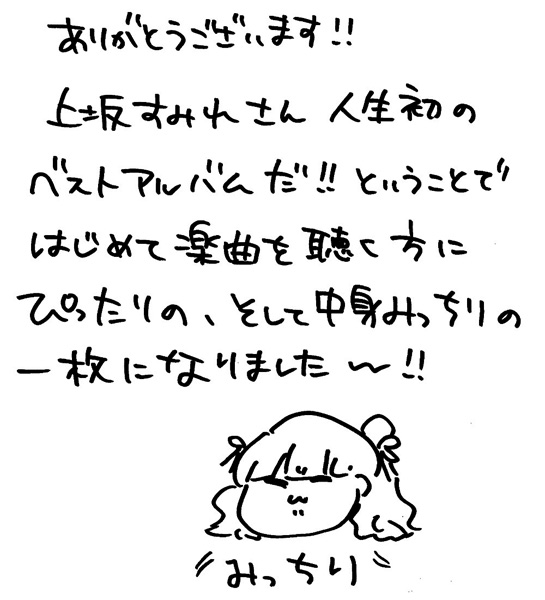 ありがとうございます!!
上坂すみれさん 人生初の
ベストアルバムだ!!ということで
はじめて楽曲を聴く方に
ぴったりの、そして中身みっちりの
一枚になりました〜!!
みっちり